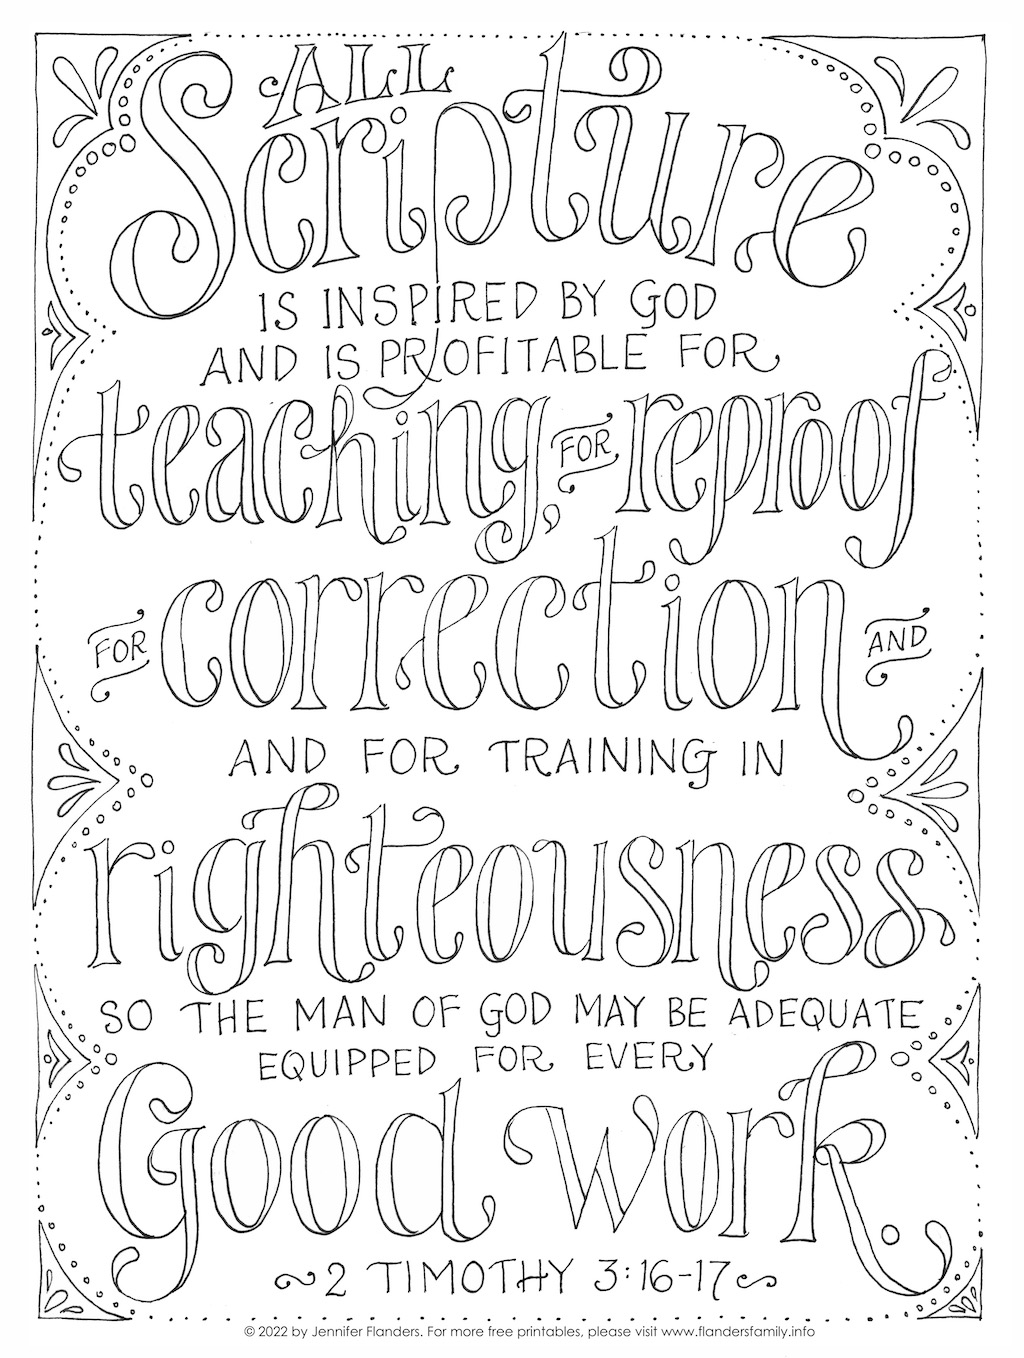 ALL
Scripture
IS INSPIRED BY GOD
AND IS PROFITABLE FOR
teaching, FOR reproof
FOR correction AND
AND FOR TRAINING IN
righteousness
SO THE MAN OF GOD MAY BE ADEQUATE
EQUIPPED FOR EVERY
Good work.
~2 TIMOTHY 3:16-17~
© 2022 by Jennifer Flanders. For more free printables, please visit www.flandersfamily.info